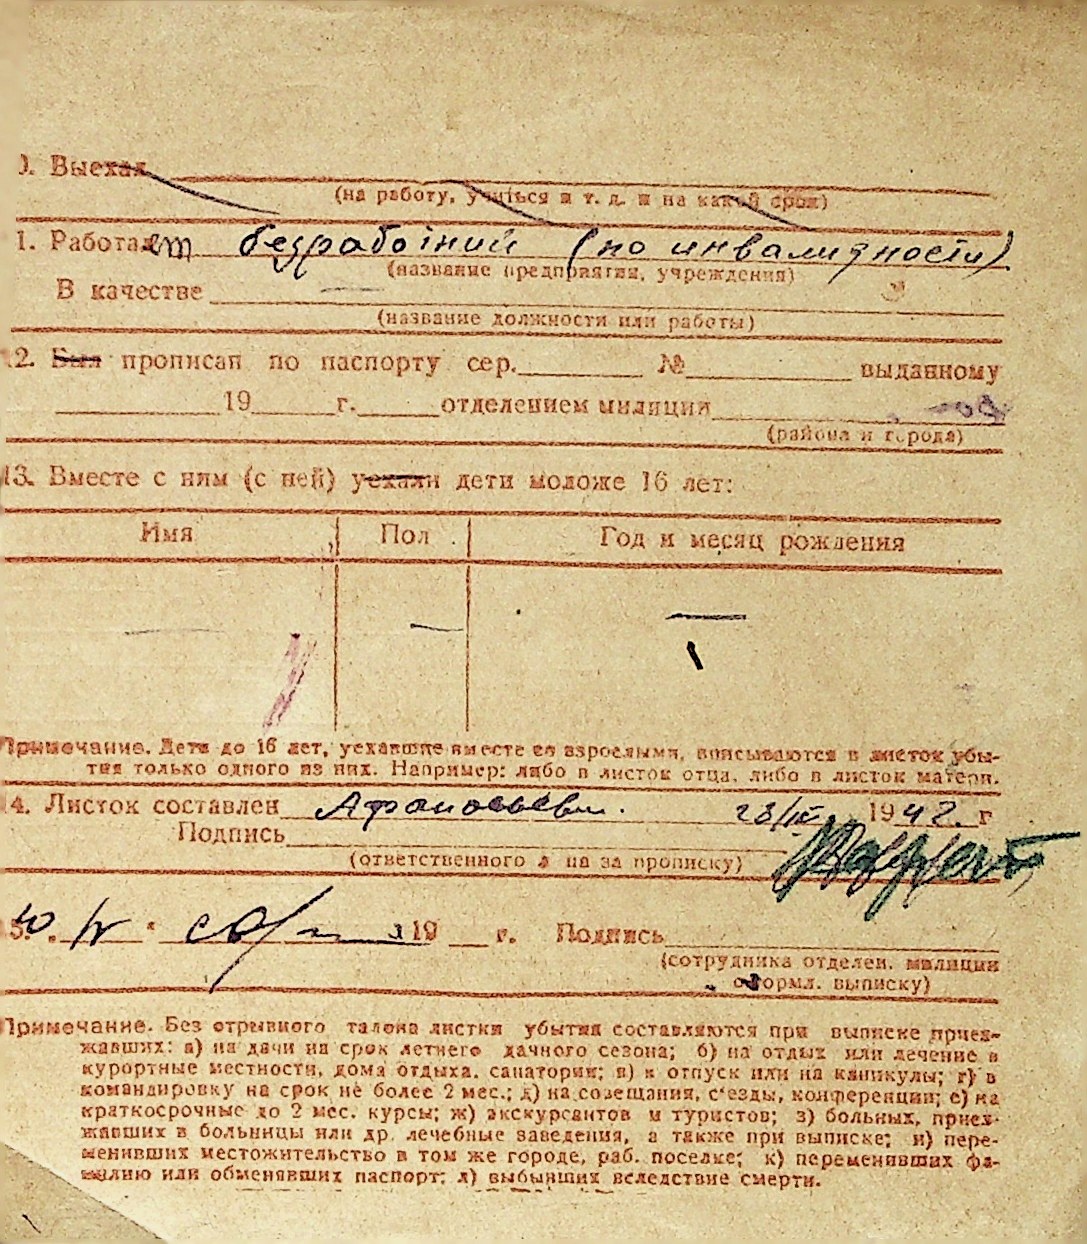 0. Выехал
(на работу, учиться и т. д. и на какой срок)
1. Работает безработный (по инвалидности)
(название предприятия, учреждения)
В качестве —
(название должности или работы)
12. Был прописан по паспорту сер.______ №______ выданному
______19___г.____отделением милиции______
(района и города)
13. Вместе с ним (с ней) уехали дети моложе 16 лет:
Имя Пол Год и месяц рождения
— — —
Примечание. Дети до 16 лет, уехавшие вместе со взрослыми, вписываются в листок убы-
тия только одного из них. Например: либо в листок отца, либо в листок матери.
14. Листок составлен 23/IV 1942. г
Подпись
(ответственного на за прописку)
15. 19 г. Подпись
(сотрудника отделен. милиции
оформл. выписку)
Примечание. Без отрывного талона листки убытия составляются при выписке приез-
жавших: а) на дачи на срок летнего дачного сезона; б) на отдых или лечение в
курортные местности, дома отдыха, санатории; в) в отпуск или на каникулы; г) в
командировку на срок не более 2 мес.; д) на совещания, с'езды, конференции; е) на
краткосрочные до 2 мес. курсы; ж) экскурсантов и туристов; з) больных, приез-
жавших в больницы или др. лечебные заведения, а также при выписке; и) пере-
менивших местожительство в том же городе, раб. поселке; к) переменивших фа-
милию или обменявших паспорт; л) выбывших вследствие смерти.